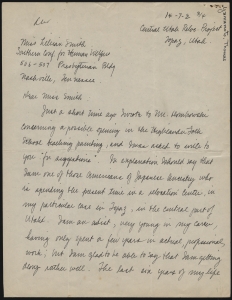 Central Utah Reloc. Project
Topaz, Utah.
Miss Lillian Smith
Southern Conf. for Human Welfare
Presbyterian Bldg
Nashville, Tennessee
Dear Miss Smith
Just a short time ago I wrote to Mr.
concerning a possible opening in the Highlander Folk
School teaching painting, and I was asked to write to
you for suggestions. In explanation I should say that
I am one of those Americans of Japanese Ancestry who
is spending the present time in a relocation center, in
my particular case in Topaz, in the central part of
Utah. I am an artist, very young in my career,
having only spent a few years in actual professional
work; but I am glad to be able to say that I am getting
along rather well. The last six years of my life